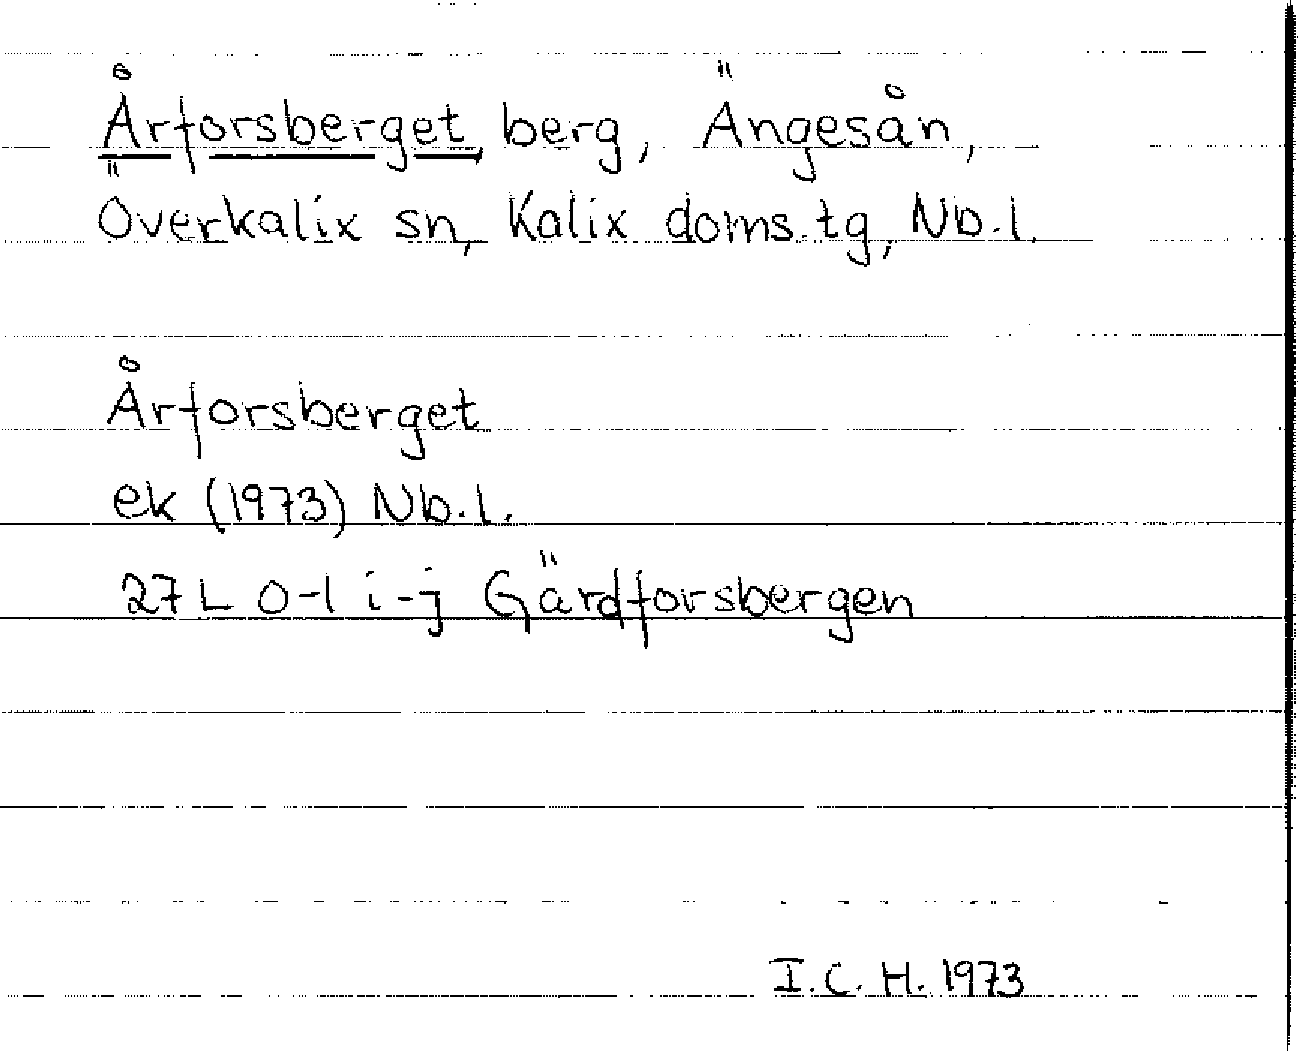 Årforsberget, berg, Ängesån,
Överkalix sn, Kalix doms.tg, Nb.l.
Årforsberget
ek (1973) Nb.l.
27L 0-1 i-j Gärdforsbergen
I.C.H. 1973